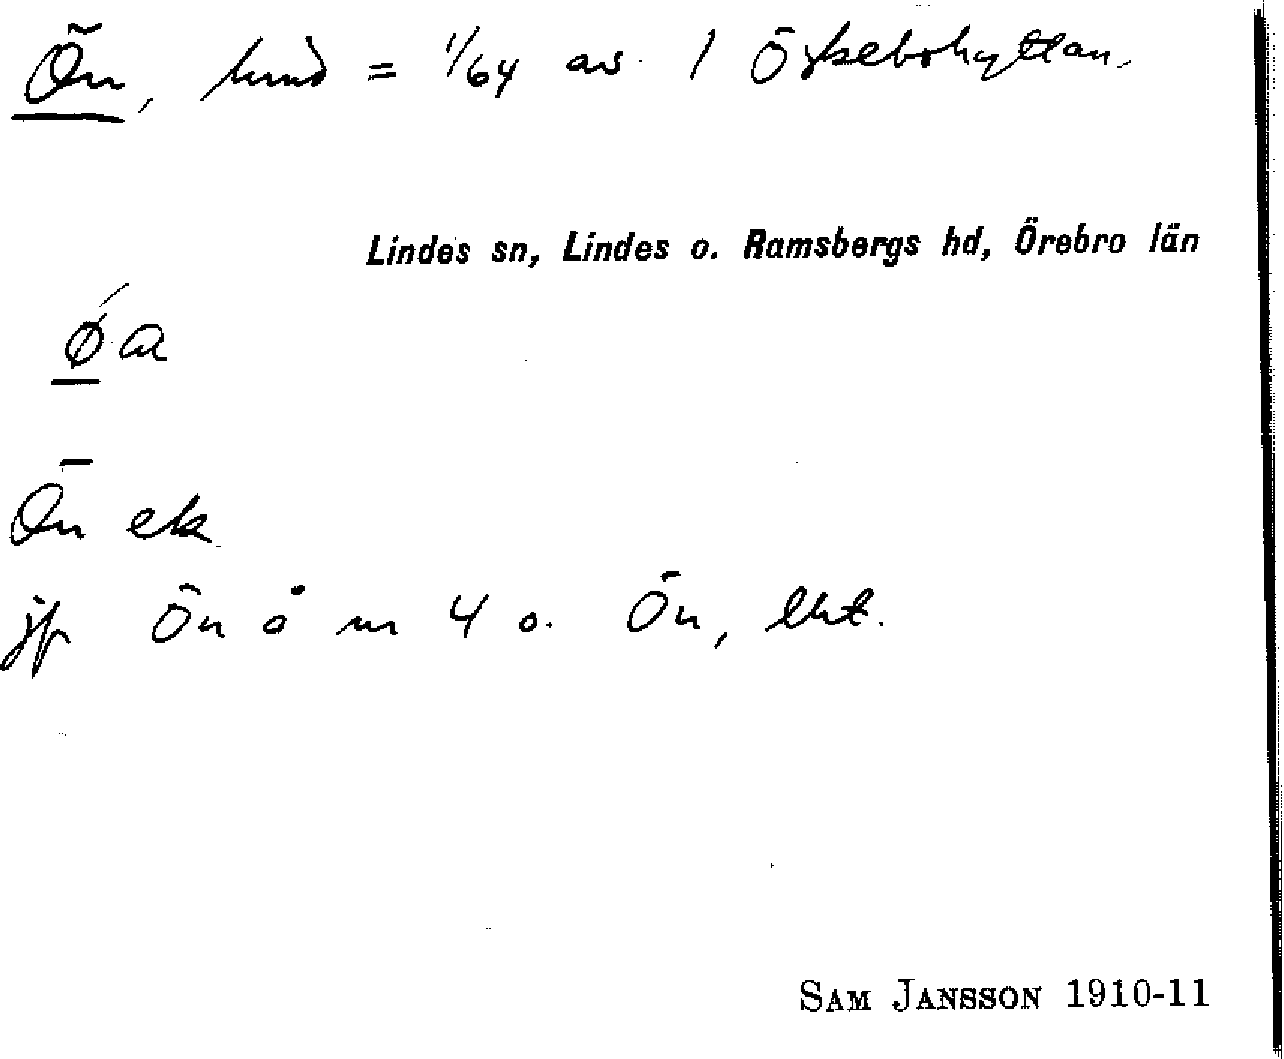 Ön, hmd = 1/64 av 1 Öskebohyttan.
Lindes sn, Lindes o. Ramsbergs hd, Örebro län
ǿa
Ön ek
jfr Ön å nr 4 o. Ön, lht.
SAM JANSSON 1910-11